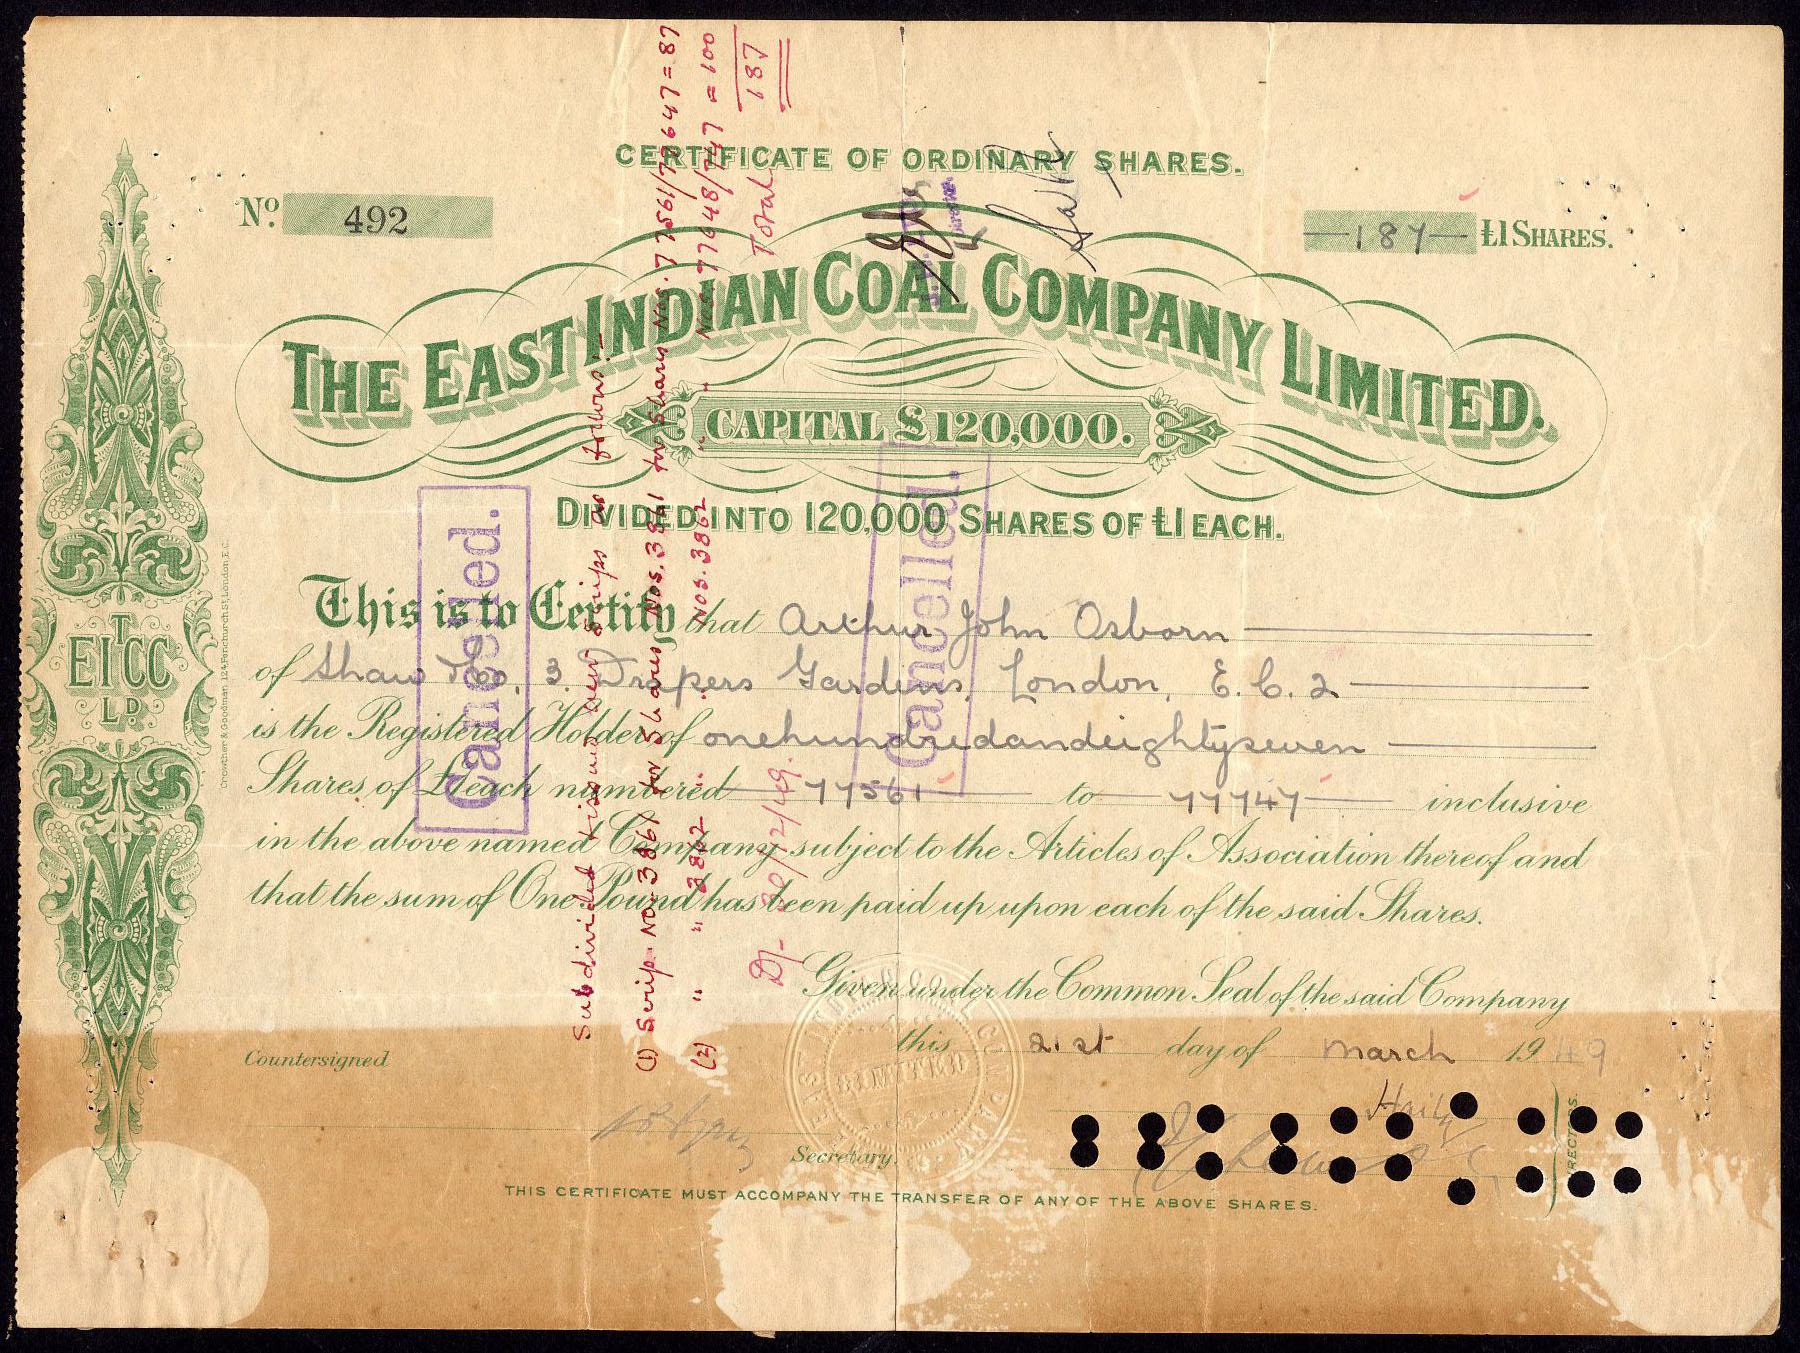 CERTIFICATE OF ORDINARY SHARES.
No. 492
—187— £1 SHARES.
THE EAST INDIAN COAL COMPANY LIMITED.
CAPITAL £120,000.
DIVIDED INTO 120,000 SHARES OF £1 EACH.
This is to Certify that Arthur John Osborn
of Shaw &Co, 3, Drapers Gardens, London, E.C.2
is the Registered Holder of onehundredandeightyseven
Shares of £1 each numbered 77561 to 77747 inclusive
in the above named Company subject to the Articles of Association thereof and
that the sum of One Pound has been paid up upon each of the said Shares.
Given under the Common Seal of the said Company
this 21st day of March 1949
Countersigned
Secretary.
DIRECTORS.
THIS CERTIFICATE MUST ACCOMPANY THE TRANSFER OF ANY OF THE ABOVE SHARES.
THE
EICC
LD
Crowther & Goodman, 124 Fenchurch St London, E.C.
Cancelled.
Cancelled.
Subdivided & issued new Scrips as follows:—
(1) Scrip No. 3861 for Shares Nos. 77561/77647 = 87
(2) " " 3862 " " Nos. 77648/747 = 100
Total 187
30/12/49.
Director.